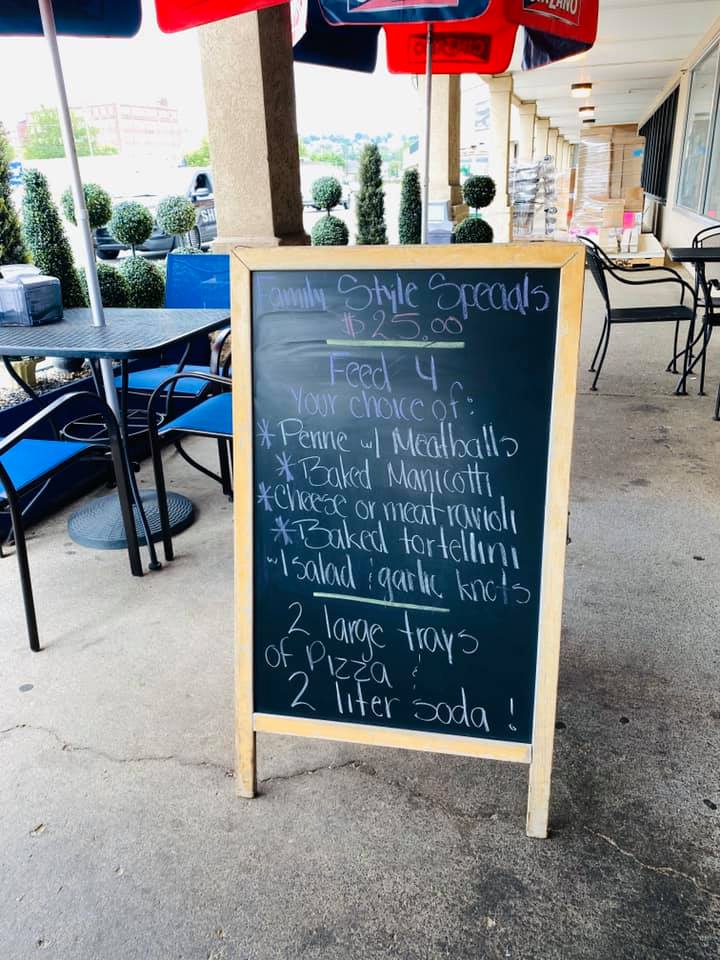 Family Style Specials
$25.00
Feed 4
Your choice of:
* Penne w/ Meatballs
* Baked Manicotti
* Cheese or meat ravioli
* Baked tortellini
w/ salad & garlic knots
2 large trays
of Pizza &
2 liter soda!